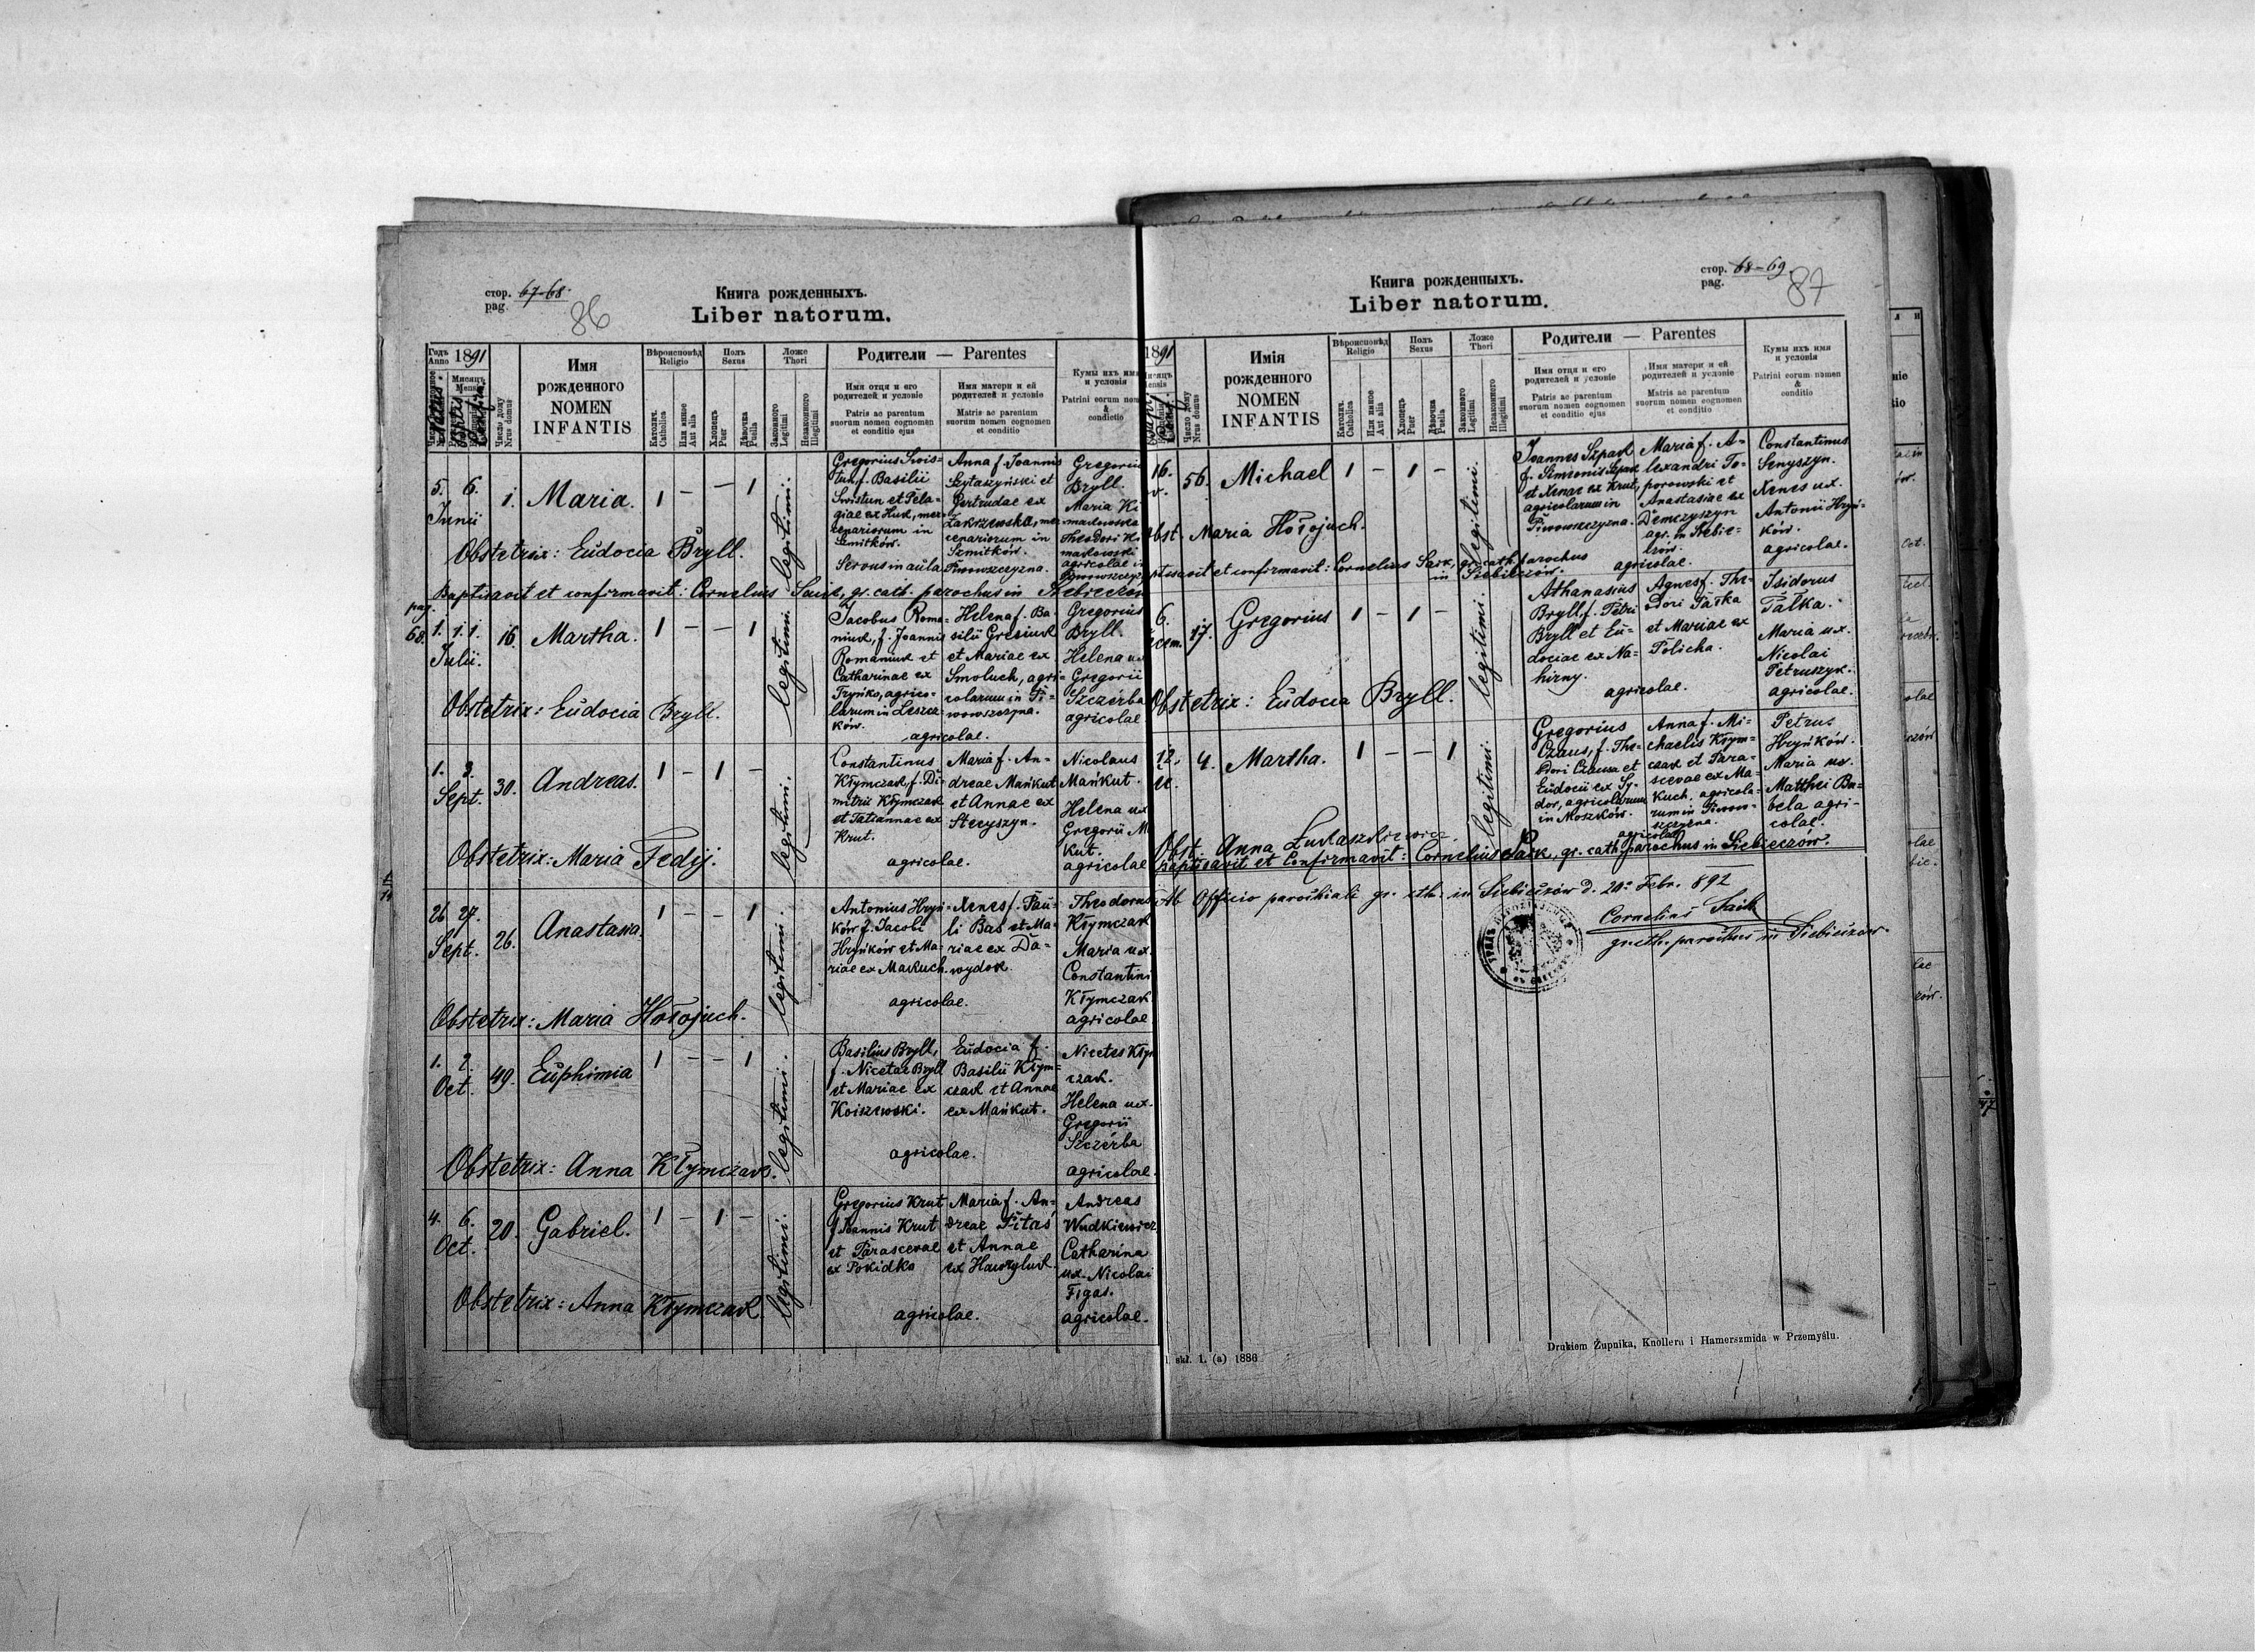 стор. 67-68.
pag.
86
Книга рожденныхъ.
Liber natorum.
Годъ Anno 1891
Мѣсяцъ Mensis
Natus
Baptis.
Confirm.
Число дому Nrus domus
Имя рожденного NOMEN INFANTIS
Вѣроисповѣд Religio
Католич. Catholica
Или иное Aut alia
Полъ Sexus
Хлопецъ Puer
Дѣвочка Puella
Ложе Thori
Законного Legitimi
Незаконного Illegitimi
Родители — Parentes
Имя отця и его родителей и условіе
Patris ac parentum suorum nomen cognomen et conditio ejus
Имя матери и ей родителей и условіе
Matris ac parentum suorum nomen cognomen et conditio
Кумы ихъ имя и условія
Patrini eorum nomen & condictio
5. 6. Junii
1.
Maria.
1 — — 1
legitimi.
Gregorius Swis=
tun f. Basilii
Swistun et Pela=
giae ex Huk, mer=
cenariorum in
Szmitków.
Servus in aula
Anna f. Joannis
Szytaszyński et
Gertrudae ex
Zakrzewska, mer
cenariorum in
Szmitków.
Piwowszczyzna.
Gregorius
Bryll.
Maria Ki
makowska
Theodori Ki
makowski
agricolae in
Piwowszczyz
Obstetrix: Eudocia Bryll.
Baptisavit et confirmavit: Cornelius Saik, gr. cath. parochus in
pag. 68.
1. 1. 1. Julii.
16.
Martha.
1 — — 1
legitimi.
Jacobus Roma=
niuk, f. Joannis
Romaniuk et
Catharinae ex
Tryńko, agrico=
larum in Leszcz
ków.
Helena f. Ba=
silii Gresiuk
et Mariae ex
Smoluch, agri=
colarum in Pi=
wowszczyzna.
agricolae.
Gregorius
Bryll.
Helena ux
Gregorii
Szczerba
agricolae
Obstetrix: Eudocia Bryll.
1. 3. Sept.
30.
Andreas.
1 — 1 —
legitimi.
Constantinus
Kłymczak, f. Di=
mitrii Kłymczak
et Tatiannae ex
Krut.
Maria f. An=
dreae Mańkut
et Annae ex
Stecyszyn.
agricolae.
Nicolaus
Mańkut.
Helena ux
Gregorii M
kut.
agricolae
Obstetrix: Maria Fedij.
26 27. Sept.
26.
Anastasia.
1 — — 1
legitimi.
Antonius Hryń=
ków f. Jacobi
Hryńków et Ma=
riae ex Makuch.
Xenes f. Pau=
li Bas et Ma=
riae ex Da=
wydok.
agricolae.
Theodorus
Kłymczak
Maria ux.
Constantini
Kłymczak
agricolae
Obstetrix: Maria Hołojuch.
1. 2. Oct.
49.
Euphimia
1 — — 1
legitimi.
Basilius Bryll,
f. Nicetae Bryll
et Mariae ex
Koiszewski.
Eudocia f.
Basilii Kłym=
czak et Annae
ex Mańkut.
agricolae.
Nicetes Kłym
czak.
Helena ux.
Gregorii
Szczerba
agricolae.
Obstetrix: Anna Kłymczak.
4. 6. Oct.
20.
Gabriel.
1 — 1 —
legitimi.
Gregorius Krut
f. Joannis Krut
et Parascevae
ex Pokidko
Maria f. An=
dreae Pitas
et Annae
ex Hawryluk.
agricolae.
Andreas
Wudkiewicz
Catharina
ux. Nicolai
Figas.
agricolae.
Obstetrix: Anna Kłymczak.
стор. 68-69
pag.
87
Книга рожденныхъ.
Liber natorum.
1891
Число дому Nrus domus
Имія рожденного NOMEN INFANTIS
Вѣроисповѣд Religio
Католич. Catholica
Или иное Aut alia
Полъ Sexus
Хлопецъ Puer
Дѣвочка Puella
Ложе Thori
Законного Legitimi
Незаконного Illegitimi
Родители — Parentes
Имя отця и его родителей и условіе
Patris ac parentum suorum nomen cognomen et conditio ejus
Имя матери и ей родителей и условіе
Matris ac parentum suorum nomen cognomen et conditio
Кумы ихъ имя и условія
Patrini eorum nomen & conditio
16. v.
56.
Michael
1 — 1 —
legitimi.
Joannes Szpak
f. Simeonis Szpak
et Xenae ex Krut,
agricolarum in
Piwowszczyzna.
Maria f. A=
lexandri To=
porowski et
Anastasiae ex
Demczyszyn
agr. in Siebie=
czów.
agricolae.
Constantinus
Senyszyn.
Xenes ux.
Antonii Hryń=
ków.
agricolae.
obst. Maria Hołojuch.
ptisavit et confirmavit: Cornelius Saik, gr. cath. parochus
in Siebieczów.
6. ecem.
17.
Gregorius
1 — 1 —
legitimi.
Athanasius
Bryll, f. Petri
Bryll et Eu=
dociae ex Na=
hirny.
Agnes f. The=
odori Pałka
et Mariae ex
Policha.
agricolae.
Isidorus
Pałka.
Maria ux.
Nicolai
Petruszyk.
agricolae.
Obstetrix: Eudocia Bryll.
12.
4.
Martha.
1 — — 1
legitimi.
Gregorius
Czaus, f. The=
odori Czausa et
Eudocii ex Sy=
dor, agricolarum
in Moszków.
Anna f. Mi=
chaelis Kłym=
czak et Para=
scevae ex Ma=
kuch, agricola=
rum in Piwow=
szczyzna.
agricolae
Petrus
Hryńków.
Maria ux.
Matthei Ba=
bela agri=
colae.
Obst. Anna Łukaszkiewicz
Baptisavit et Confirmavit: Cornelius Saik, gr. cath. parochus in Siebieczów.
Ab Officio parochiali gr. cth. in Siebieczów d. 20. Febr. 892
Cornelius Saik
gr. cth. parochus in Siebieczów.
skł. 1. (a) 1886
Drukiem Żupnika, Knollera i Hamerszmida w Przemyślu.